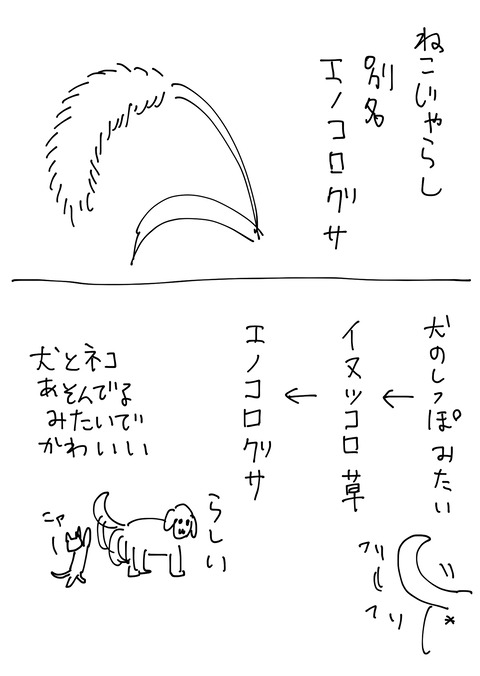 ねこじゃらし
別名
エノコログサ
犬のしっぽみたい
フリ
フリ
←
イヌッコロ草
←
エノコログサ
らしい
犬とネコ
あそんでる
みたいで
かわいい
ニャー